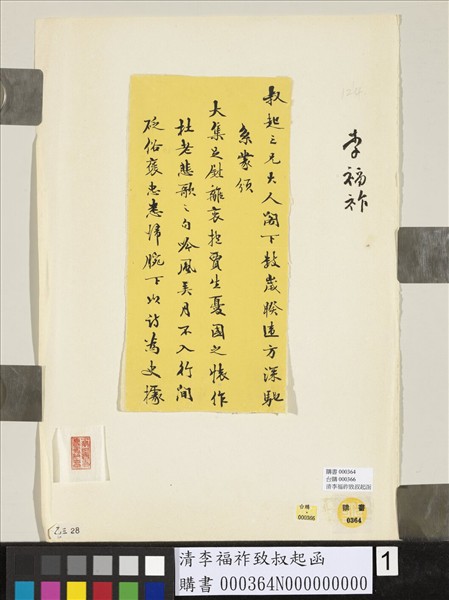 124
李福祚
叔起三兄大人閣下數歲睽違方深馳
系蒙頒
大集足慰離衷抱賈生憂國之懷作
杜老悲歌之句吟風弄月不入行間
砭俗褒忠悉歸腕下以詩為史據
購書 000364
台購 000366
清李福祚致叔起函
台購
000366
購書
0364
28
清李福祚致叔起函
購書 000364N000000000
1